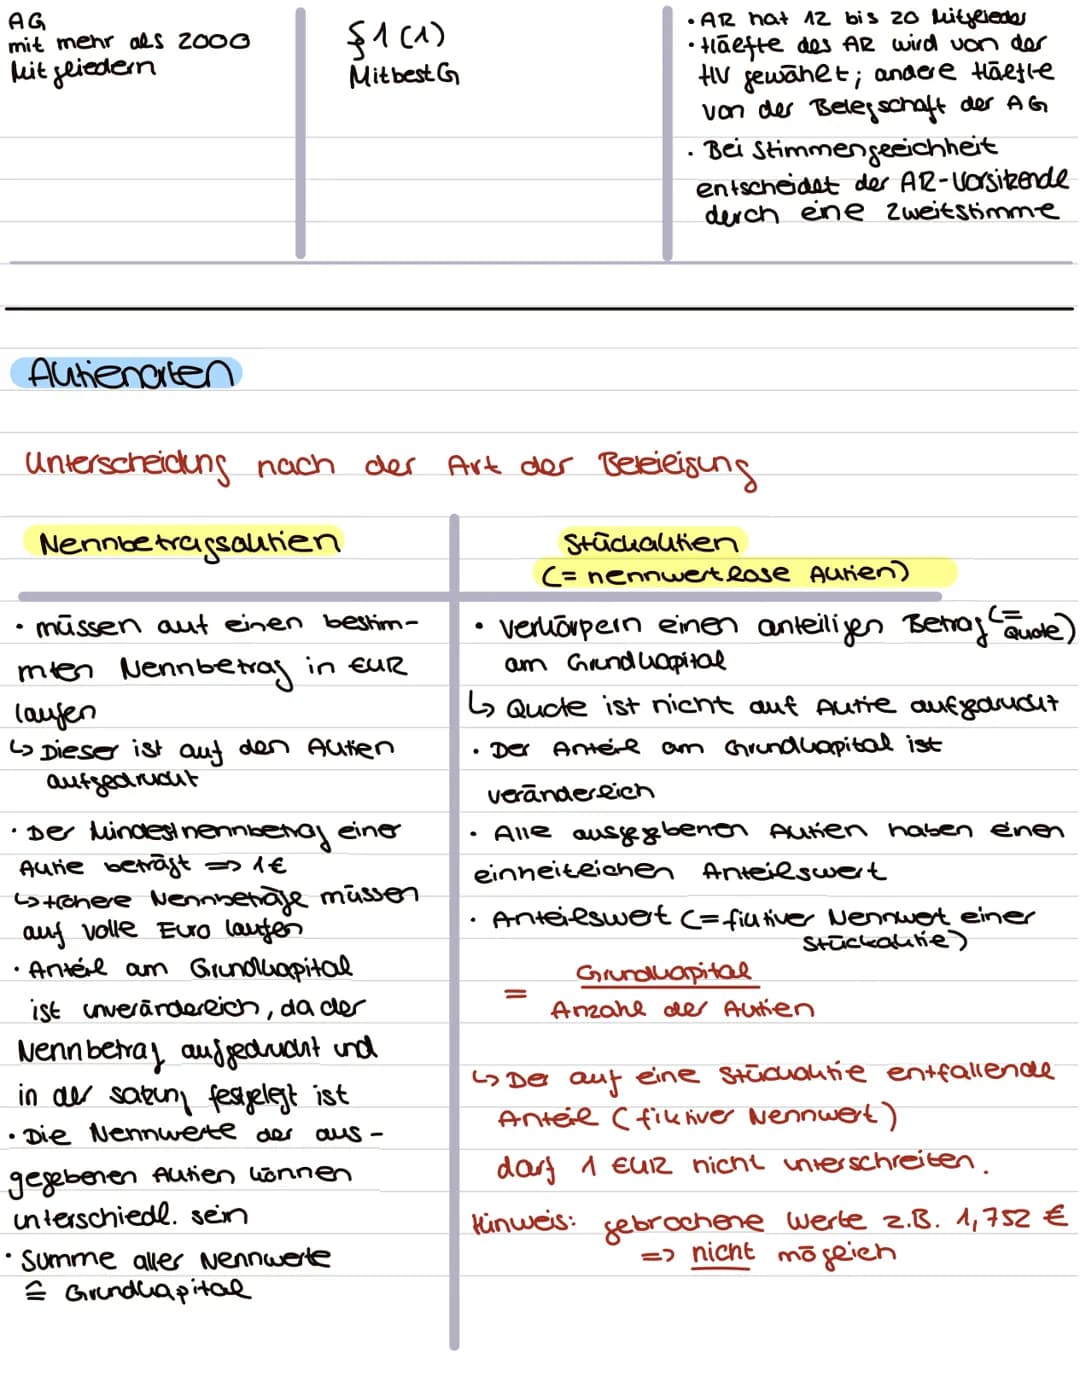 AG
mit mehr als 2000
Mitgliedern
§1 (1)
MitbestG
• AR hat 12 bis 20 Mitglieder
• Hälfte des AR wird von der
HV gewählt; andere Hälfte
von der Belegschaft der AG
• Bei Stimmengleichheit
entscheidet der AR-Vorsitzende
durch eine Zweitstimme
Aktienarten
Unterscheidung nach der Art der Beteiligung
Nennbetragsaktien
• müssen auf einen bestim-
mten Nennbetrag in EUR
laufen
↳ Dieser ist auf den Aktien
aufgedruckt
• Der Mindestnennbetrag einer
Aktie beträgt => 1€
↳ Höhere Nennbeträge müssen
auf volle Euro lauten
• Anteil am Grundkapital
ist unveränderlich, da der
Nennbetrag aufgedruckt und
in der Satzung festgelegt ist
• Die Nennwerte der aus-
gegebenen Aktien können
unterschiedl. sein
• Summe aller Nennwerte
≙ Grundkapital
Stückaktien
(= nennwertlose Aktien)
• verkörpern einen anteiligen Betrag (= Quote)
am Grundkapital
↳ Quote ist nicht auf Aktie aufgedruckt
• Der Anteil am Grundkapital ist
veränderlich
• Alle ausgegebenen Aktien haben einen
einheitlichen Anteilswert
• Anteilswert (= fiktiver Nennwert einer
Stückaktie)
= Grundkapital
Anzahl der Aktien
↳ Der auf eine Stückaktie entfallende
Anteil (fiktiver Nennwert)
darf 1 EUR nicht unterschreiten.
Hinweis: gebrochene Werte z.B. 1,752 €
=> nicht möglich